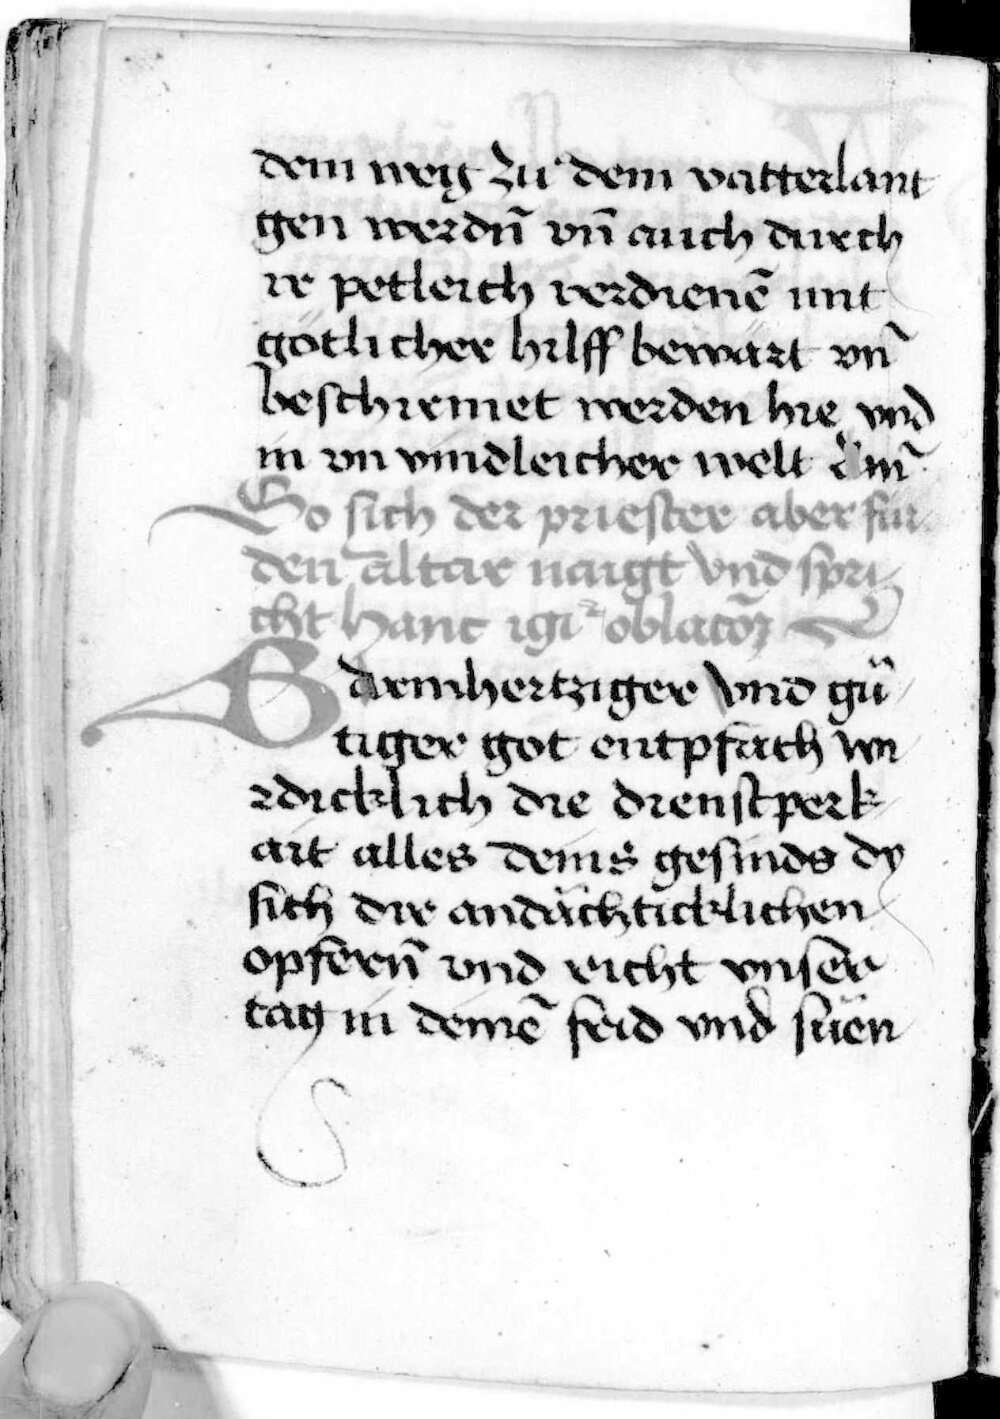 dem weig zu dem vatterlant
gen werdn̄ vn̄ auch durch
ir petleich verdienē mit
götlicher hilff bewart vn̄
beschirmet werden hie vnd
in vn vindleicher welt am̄
So sich der priester aber für
den altar naigt vnd spri
cht Hanc igr̄ oblacōȝ
B armhertziger vnd gü
tiger got entpfach wi
rdicklich die dienstperk
ait alles deins gesinds dy
sich dir andächticklichen
opfern̄ vnd richt vnser
tag in deinē frid vnd